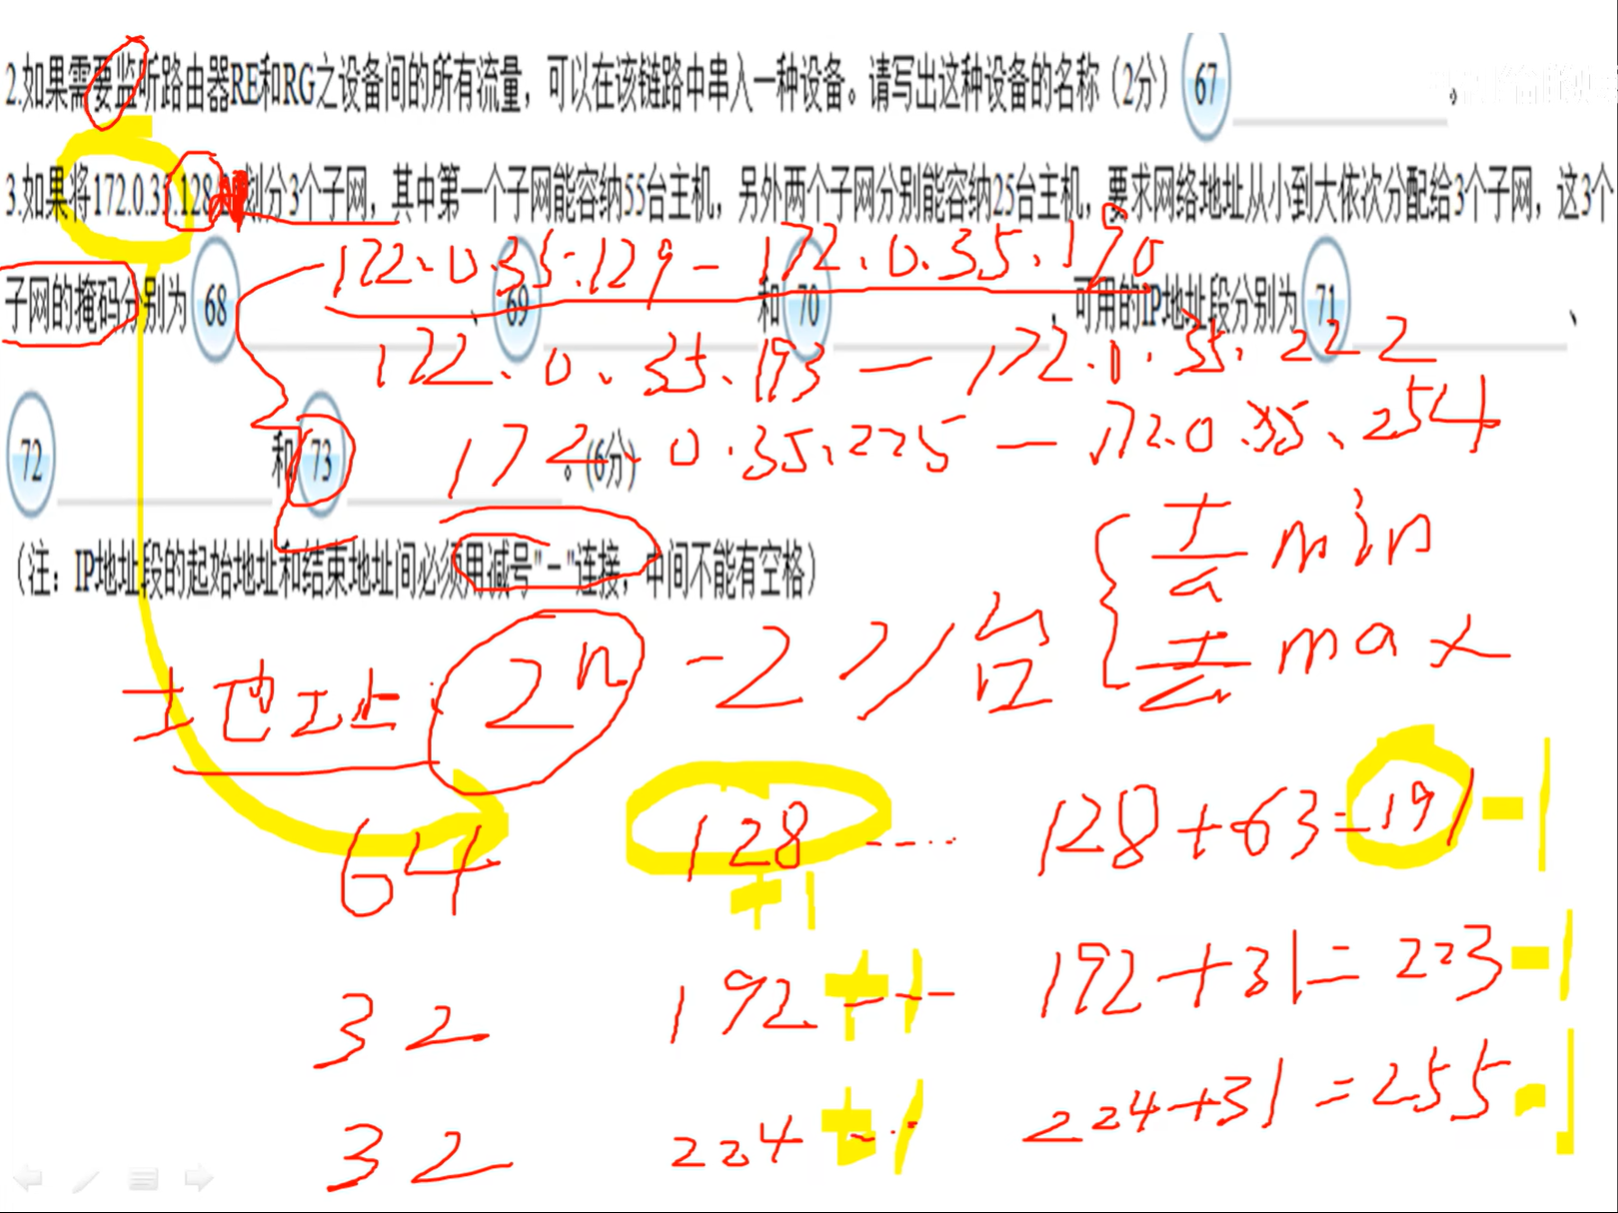 2.如果需要监听路由器RE和RG之设备间的所有流量，可以在该链路中串入一种设备。请写出这种设备的名称（2分） 67 。
3.如果将172.0.3 .128 划分3个子网，其中第一个子网能容纳55台主机，另外两个子网分别能容纳25台主机，要求网络地址从小到大依次分配给3个子网，这3个
172.0.35.129-172.0.35.190
子网的掩码分别为 68 、 69 和 70 ，可用的IP地址段分别为 71 、
172.0.35.193-172.0.35.222
72 和 73 。(6分)
172.0.35.225-172.0.35.254
（注：IP地址段的起始地址和结束地址间必须用减号"-"连接，中间不能有空格）
min
地址: 2ⁿ -2 ≥/台
max
64 128 ---- 128+63=191 -1
+1
32 192 +1 --- 192+31=223 -1
32 224 +1 --- 224+31=255 -1